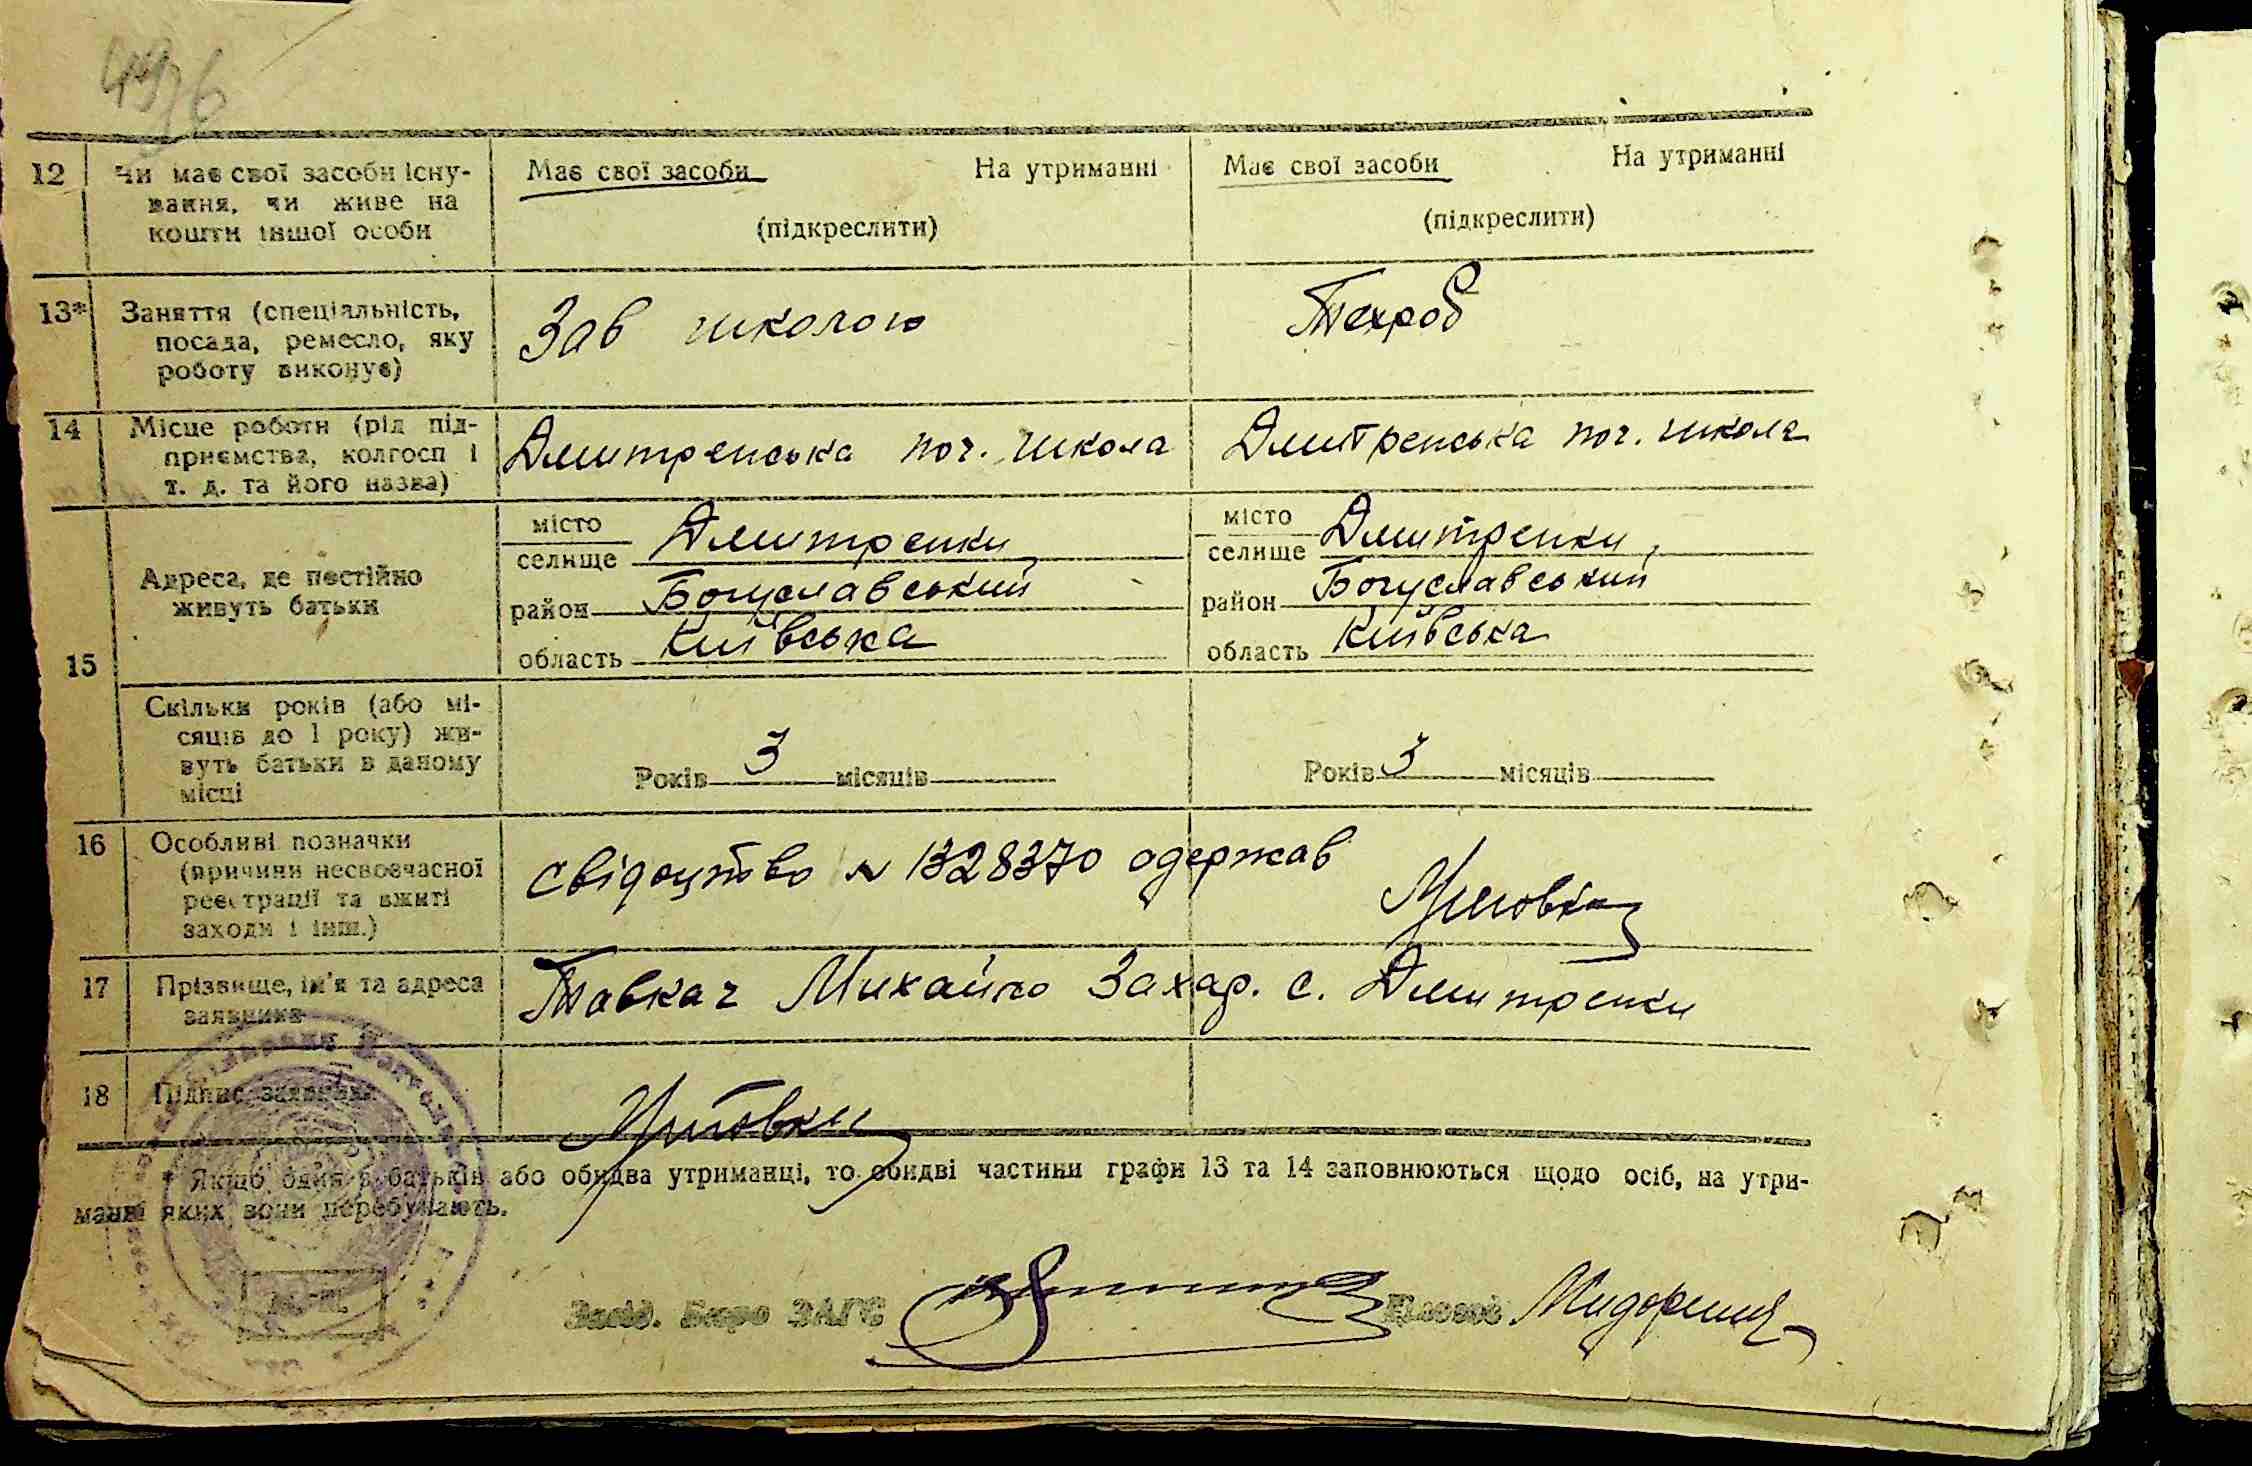 4976
12 Чи має свої засоби існу-
вання, чи живе на
кошти іншої особи
Має свої засоби На утриманні
(підкреслити)
Має свої засоби На утриманні
(підкреслити)
13* Заняття (спеціальність,
посада, ремесло, яку
роботу виконує)
Зав школою
Техроб
14 Місце роботи (рід під-
приємства, колгосп і
т. д. та його назва)
Дмитренська поч. школа
Дмитренська поч. школа
15 Адреса, де постійно
живуть батьки
місто
селище Дмитренки,
район Богуславський
область Київська
місто
селище Дмитренки,
район Богуславський
область Київська
Скільки років (або мі-
сяців до 1 року) жи-
вуть батьки в даному
місці
Років 3 місяців
Років 3 місяців
16 Особливі позначки
(причини несвоєчасної
реєстрації та вжиті
заходи і інш.)
Свідоцтво № 1328370 одержав
17 Прізвище, ім'я та адреса
заявника
Товкач Михайло Захар. с. Дмитренки
18 Підпис заявника
* Якщо один з батьків або обидва утриманці, то обидві частини графи 13 та 14 заповнюються щодо осіб, на утри-
манні яких вони перебувають.
Завід. Бюро ЗАГС